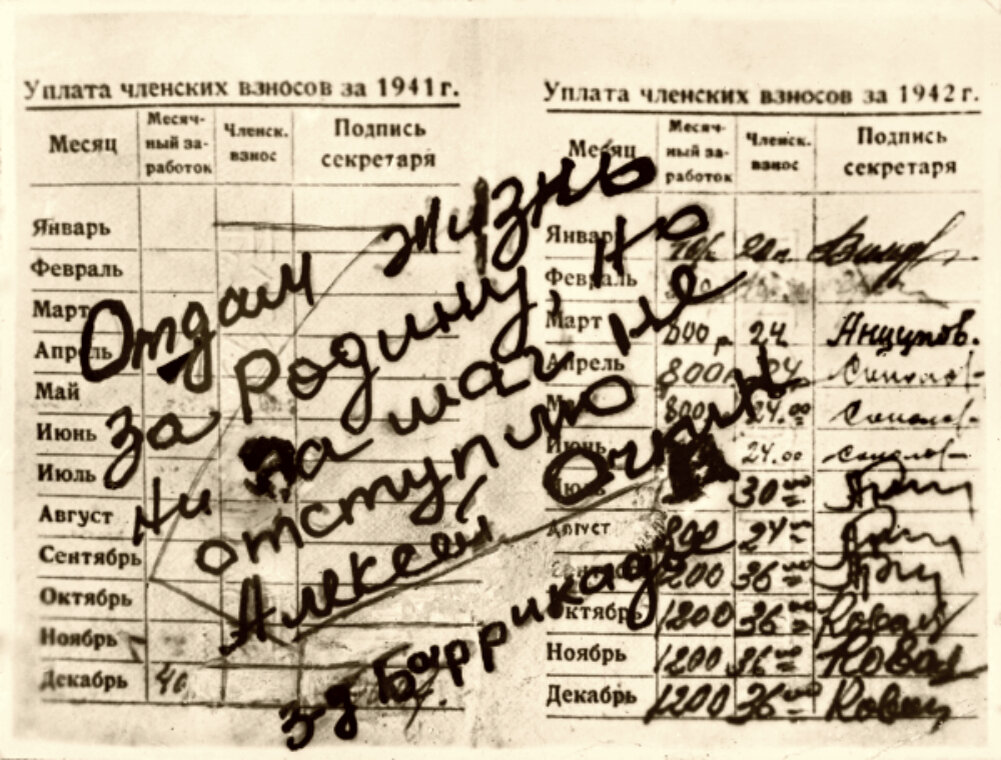 Уплата членских взносов за 1941 г.
Месяц
Месяч-
ный за-
работок
Членск.
взнос
Подпись
секретаря
Январь
Февраль
Март
Апрель
Май
Июнь
Июль
Август
Сентябрь
Октябрь
Ноябрь
Декабрь 40
Уплата членских взносов за 1942 г.
Месяц
Месяч-
ный за-
работок
Членск.
взнос
Подпись
секретаря
Январь
Февраль
Март 800 р 24 Анцупов.
Апрель 800 24
Май 800 24.00
Июнь 24.00
Июль 30 00
Август 800 24
Сентябрь 1200 36
Октябрь 1200 36 Ковал
Ноябрь 1200 36 Ковал
Декабрь 1200 36 Ковал
Отдам жизнь
за родину, но
ни на шаг не
отступлю
Алексей Очкин
з-д Баррикады